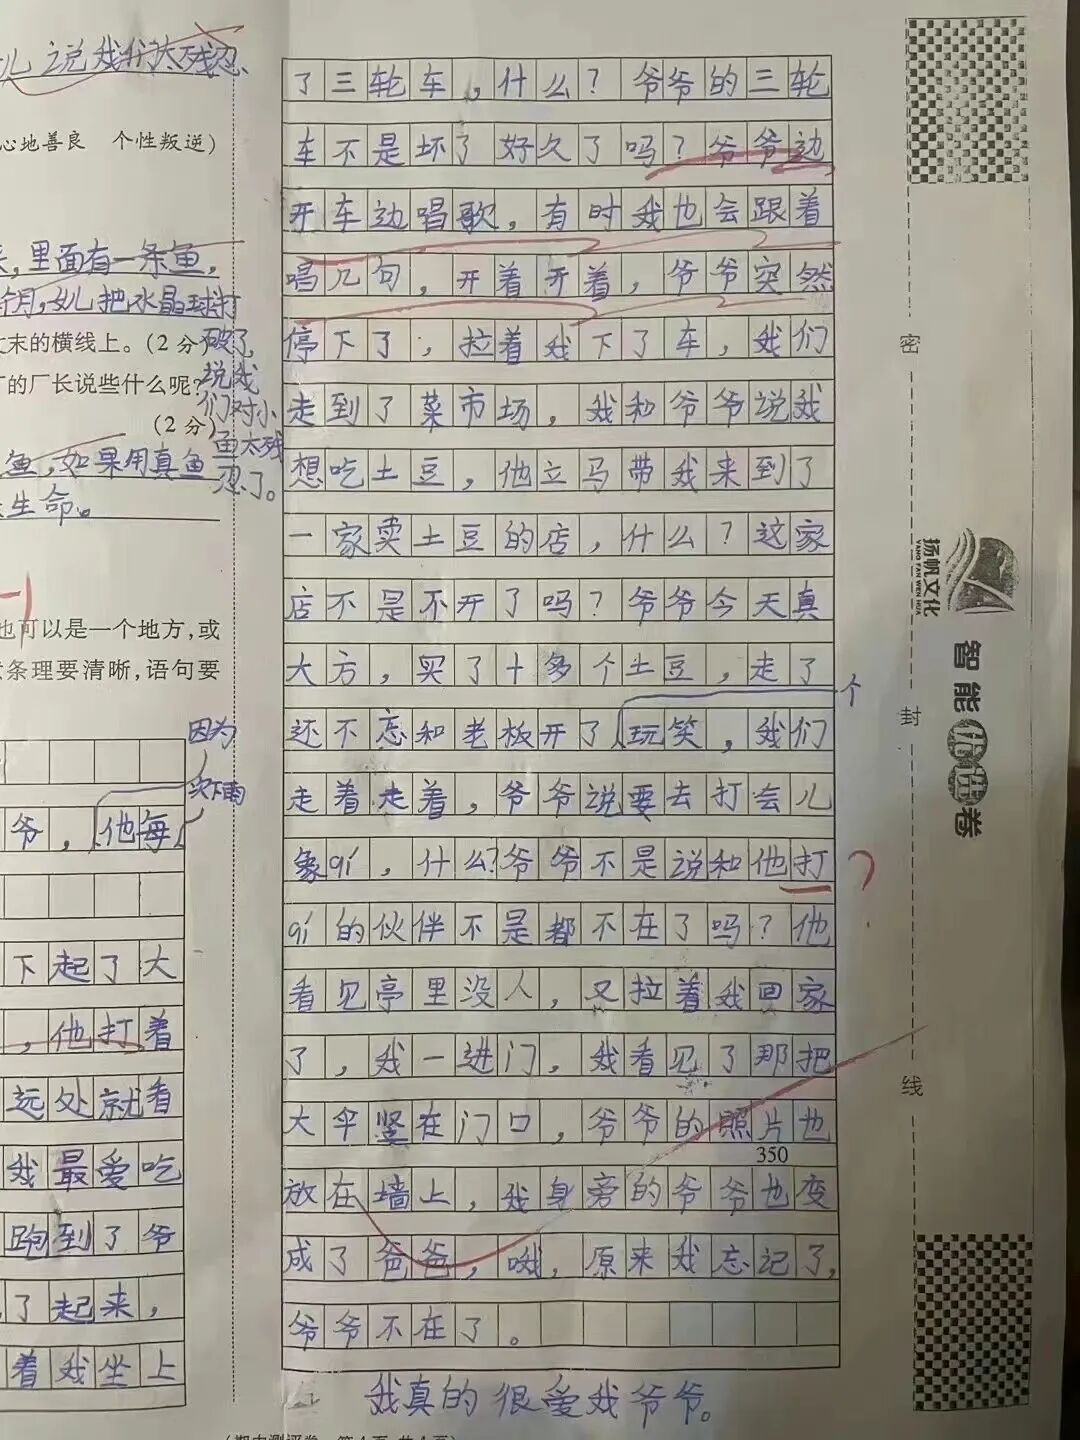 儿说我们太残忍
心地善良　个性叛逆)
,里面有一条鱼,
个月,女儿把水晶球打
破了,
文末的横线上。(2分)
说我
厂的厂长说些什么呢?
们对小
(2分)
鱼太残
鱼,如果用真鱼
忍了。
生命。
也可以是一个地方,或
条理要清晰,语句要
因为
爷,他每
次下雨
下起了大
,他打着
远处就看
我最爱吃
跑到了爷
了起来,
着我坐上
了三轮车,什么?爷爷的三轮
车不是坏了好久了吗?爷爷边
开车边唱歌,有时我也会跟着
唱几句,开着开着,爷爷突然
停下了,拉着我下了车,我们
走到了菜市场,我和爷爷说我
想吃土豆,他立马带我来到了
一家卖土豆的店,什么?这家
店不是不开了吗?爷爷今天真
大方,买了十多个土豆,走了
个
还不忘和老板开了玩笑,我们
走着走着,爷爷说要去打会儿
象qí,什么?爷爷不是说和他打
?
qí的伙伴不是都不在了吗?他
看见亭里没人,又拉着我回家
了,我一进门,我看见了那把
大伞竖在门口,爷爷的照片也
350
放在墙上,我身旁的爷爷也变
成了爸爸,哦,原来我忘记了,
爷爷不在了。
我真的很爱我爷爷。
密
封
线
扬帆文化
YANG FAN WEN HUA
智能优选卷